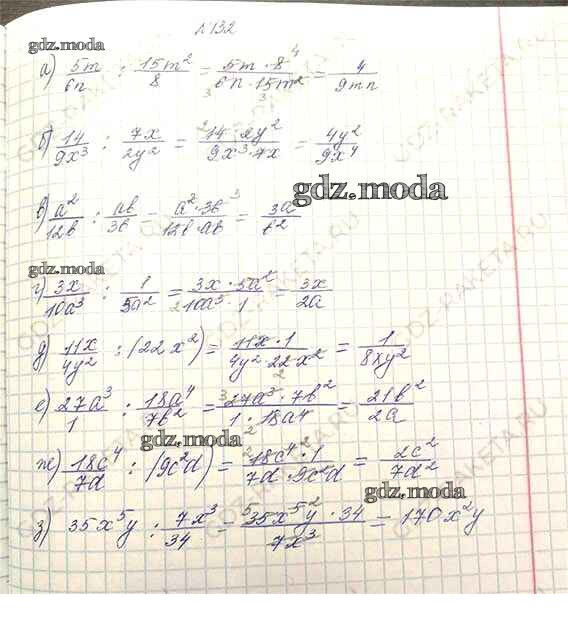 №132
gdz.moda
а) 5m/6n : 15m²/8 = 5m · 8 ⁴/₃ 6n · 15m² ₃ = 4/9mn
б) 14/9x³ : 7x/2y² = ² 14 · 2y²/9x³ · 7x = 4y²/9x⁴
gdz.moda
в) a²/12b : ab/3b = a² · 3b ³/12b · ab = 3a/b²
gdz.moda
г) 3x/10a³ : 1/5a² = 3x · 5a²/₂ 10a³ · 1 = 3x/2a
д) 11x/4y² : (22x²) = 11x · 1/4y² · 22 · x² ₂ = 1/8xy²
е) 27a³/1 : 18a⁴/7b² = ³ 27a³ · 7b²/1 · 18a⁴ ₂ = 21b²/2a
gdz.moda
ж) 18c⁴/7d : (9c²d) = ² 18c⁴ ² · 1/7d · 9c²d = 2c²/7d²
gdz.moda
з) 35x⁵y : 7x³/34 = ⁵ 35x⁵ ² y · 34/7x³ = 170x²y
gdz.moda